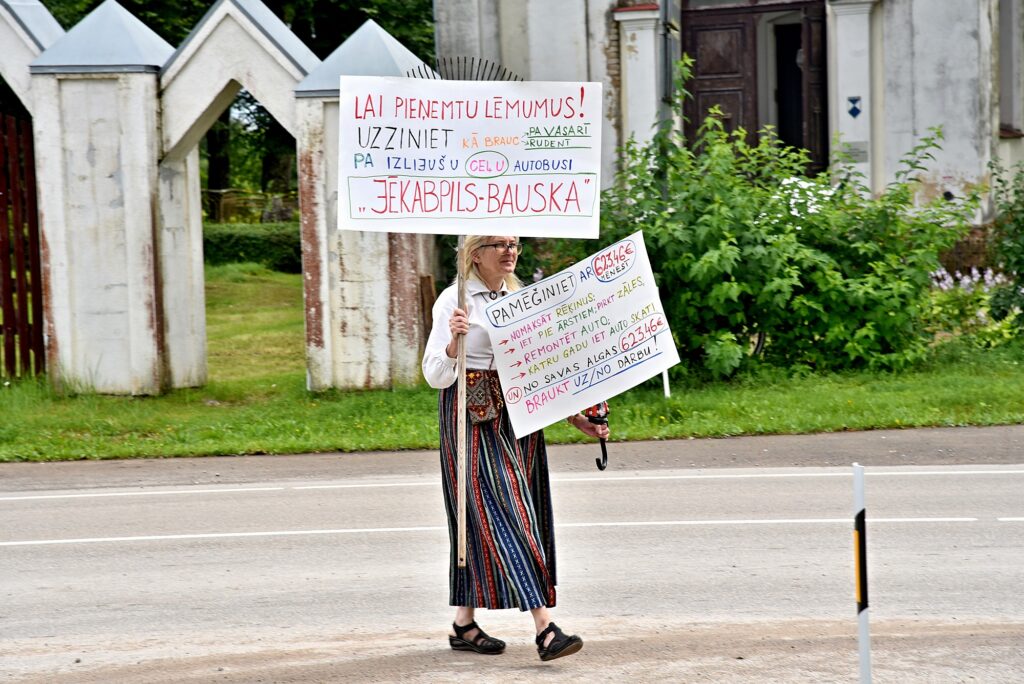 LAI PIEŅEMTU LĒMUMUS!
UZZINIET KĀ BRAUC PAVASARĪ
RUDENĪ
PA IZĻIĢUŠU CEĻU AUTOBUSI
"JĒKABPILS-BAUSKA"
PAMĒĢINIET AR 623.46€
MĒNESĪ
→ NOMAKSĀT RĒĶINUS;
→ IET PIE ĀRSTIEM; PIRKT ZĀLES,
→ REMONTĒT AUTO;
→ KATRU GADU IET AUTO SKATI
UN NO SAVAS ALGAS 623.46€
BRAUKT UZ/NO DARBU!